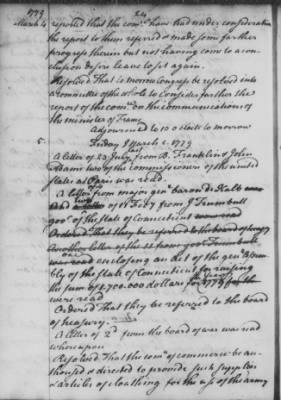 1779
24
March 4
reported that the comee have had under consideration
the report to them referred & made some further
progress therein but not having come to a con-
clusion desire leave to sit again.
Resolved That to morrow Congress be resolved into
a committee of the whole to Consider farther the
report of the comee on the communications of
the minister of France
Adjourned to 10 o clock to morrow
5.
Friday March 5. 1779
A letter of 23 July from B. Franklin & John
Adams two of the commissioners of the united
states at Paris was read.
A letter from major genl baron de Kalb
of 17 Feby from J Trumbull
govr of the state of Connecticut were read
Ordered That they be referred to the board of
Another letter of the from govr Trumbull
was read enclosing an act of the genl assem-
bly of the state of Connecticut for raising
the sum of 1,700.000 dollars for 1779
were read
Ordered That they be referred to the board
of treasury.
A letter of 2d from the board of war was read
whereupon
Resolved That the comee of commerce be au-
thorised & directed to provide such supplies
& articles of cloathing for the use of the army